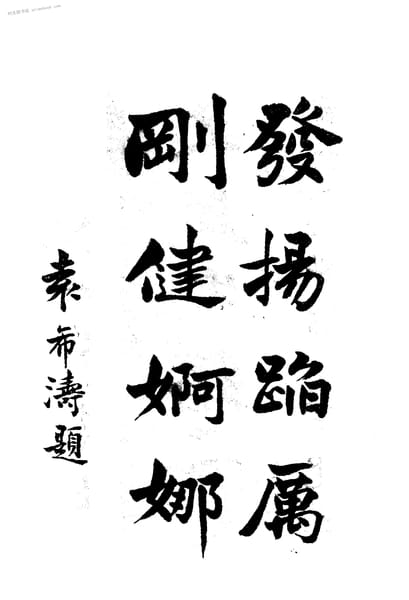 發揚蹈厲
剛健婀娜
袁希濤題